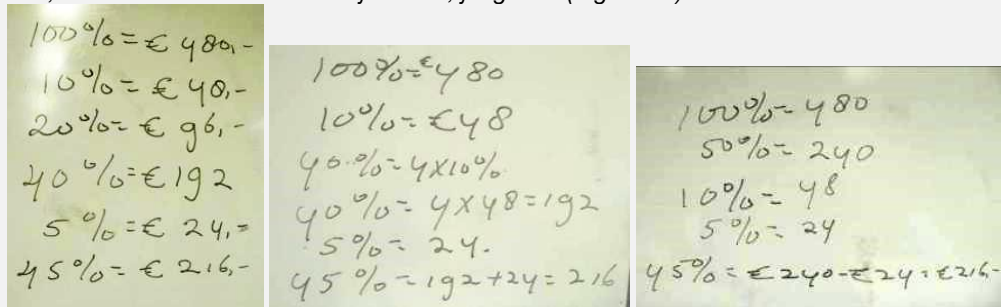 100%=€ 480,-
10%= € 48,-
20%= € 96,-
40%=€ 192
5%=€ 24,=
45%= € 216,-
100%=€480
10%=€48
40%=4x10%
40%= 4x48=192
5%= 24.
45%=192+24=216
100%=480
50%= 240
10%= 48
5%= 24
45%=€240-€24=€216-